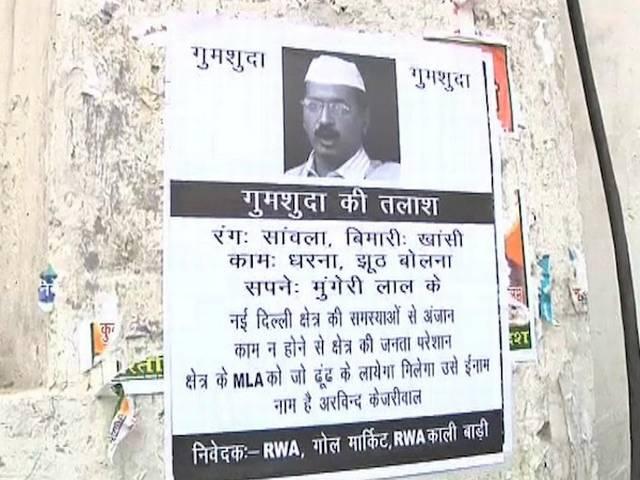 गुमशुदा
गुमशुदा
गुमशुदा की तलाश
रंगः सांवला, बिमारीः खांसी
कामः धरना, झूठ बोलना
सपनेः मुंगेरी लाल के
नई दिल्ली क्षेत्र की समस्याओं से अंजान
काम न होने से क्षेत्र की जनता परेशान
क्षेत्र के MLA को जो ढूंढ के लायेगा मिलेगा उसे ईनाम
नाम है अरविन्द केजरीवाल
निवेदकः– RWA, गोल मार्किट, RWA काली बाड़ी